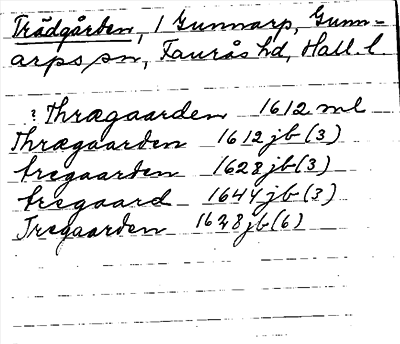 Trädgården, 1 Gunnarp, Gunn-
arps sn, Faurås hd, Hall. l.
? Thrægaarden 1612 ml
Thrægaarden 1612 jb (3)
tregaarden 1628 jb (3)
tregaard 1644 jb (3)
Tregaarden 1628 jb (6)